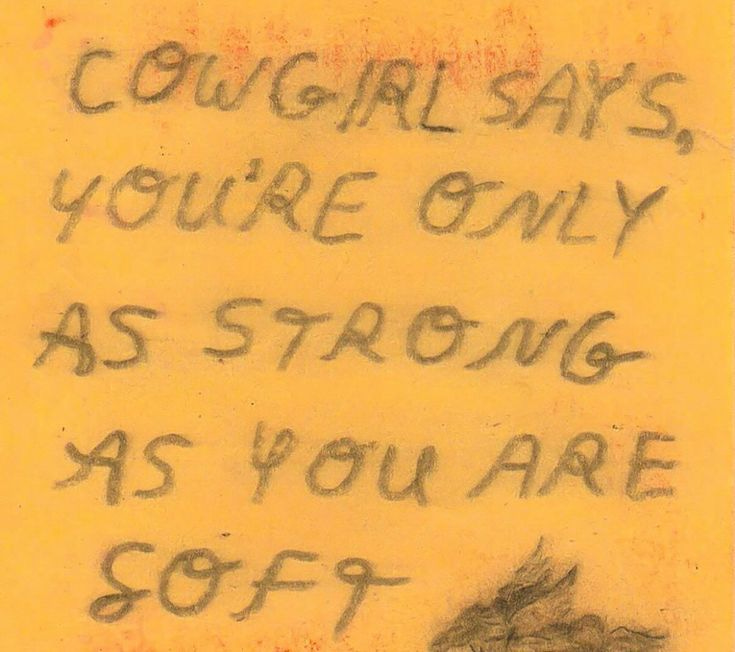 COWGIRL SAYS,
YOU'RE ONLY
AS STRONG
AS YOU ARE
SOFT